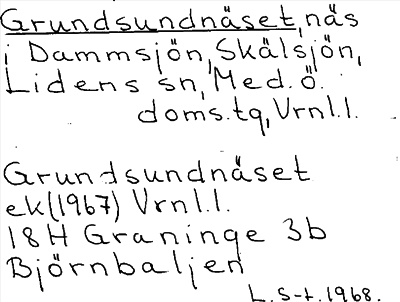 Grundsundnäset, näs
i Dammsjön, Skälsjön,
Lidens sn, Med. ö.
doms.tq, Vrnl.l.
Grundsundnäset
ek (1967) Vrnl.l.
18H Graninge 3b
Björnbaljen
L. S-t. 1968.